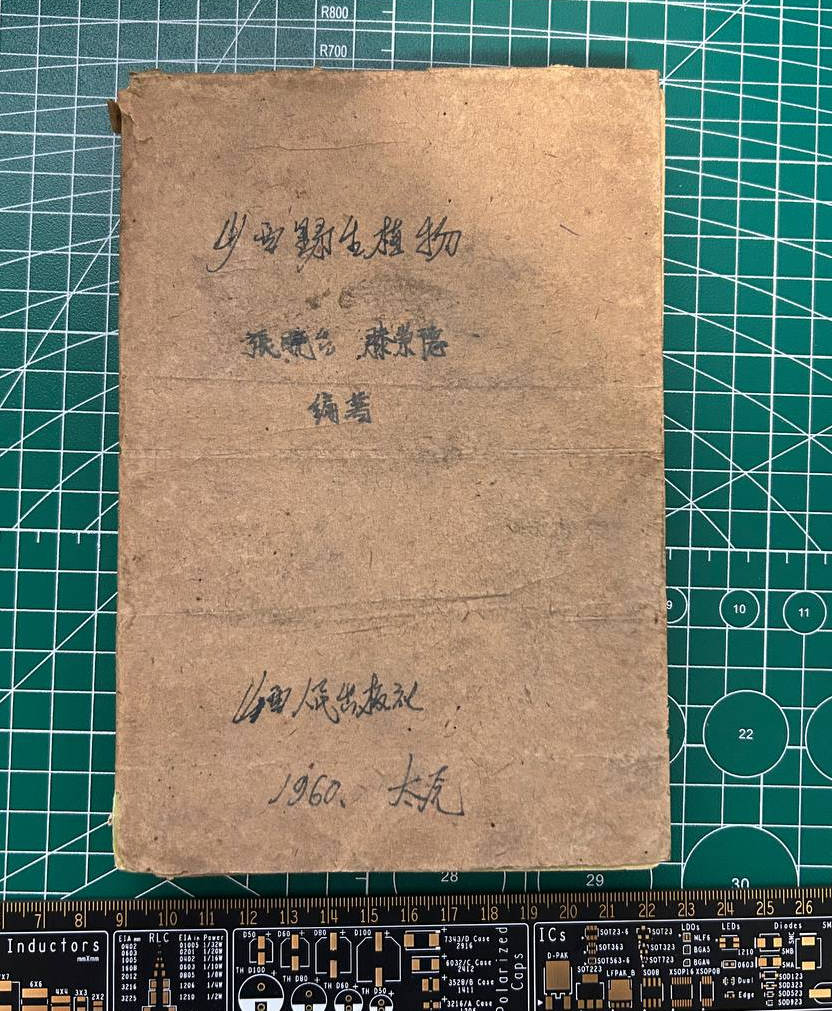 R800
R700
山西野生植物
張曉台 滕崇德
编著
山西人民出版社
1960. 太亮
9
10
11
22
28
29
30
7 8 9 10 11 12 13 14 15 16 17 18 19 20 21 22 23 24 25 26
Inductors
mmXmm
6X6
4X4
3X3
2X2
EIA mm RLC EIA in Power
0402 01005 1/32W
0603 0201 1/20W
1005 0402 1/16W
1608 0603 1/10W
2012 0805 1/8W
3216 1206 1/4W
3225 1210 1/2W
D50 D60 D80 D100
TH D100 TH D80 TH D60 TH D50
7343/D Case
2916
6032/C Case
2412
3528/B Case
1411
3216/A Case
Polarized
Caps
ICs
D-PAK
SOT23-6
SOT363
SOT563-6
SOT223
LFPAK_8
SOT23
SOT323
SOT523
SO08
LDOs
WLF6
BGA5
BGA4
XSOP16
XSOP08
LEDs
1210
0603
Dual
Edge
Diodes
SMC
SMB
SMA
SOD123
SOD323
SOD523
SOD923